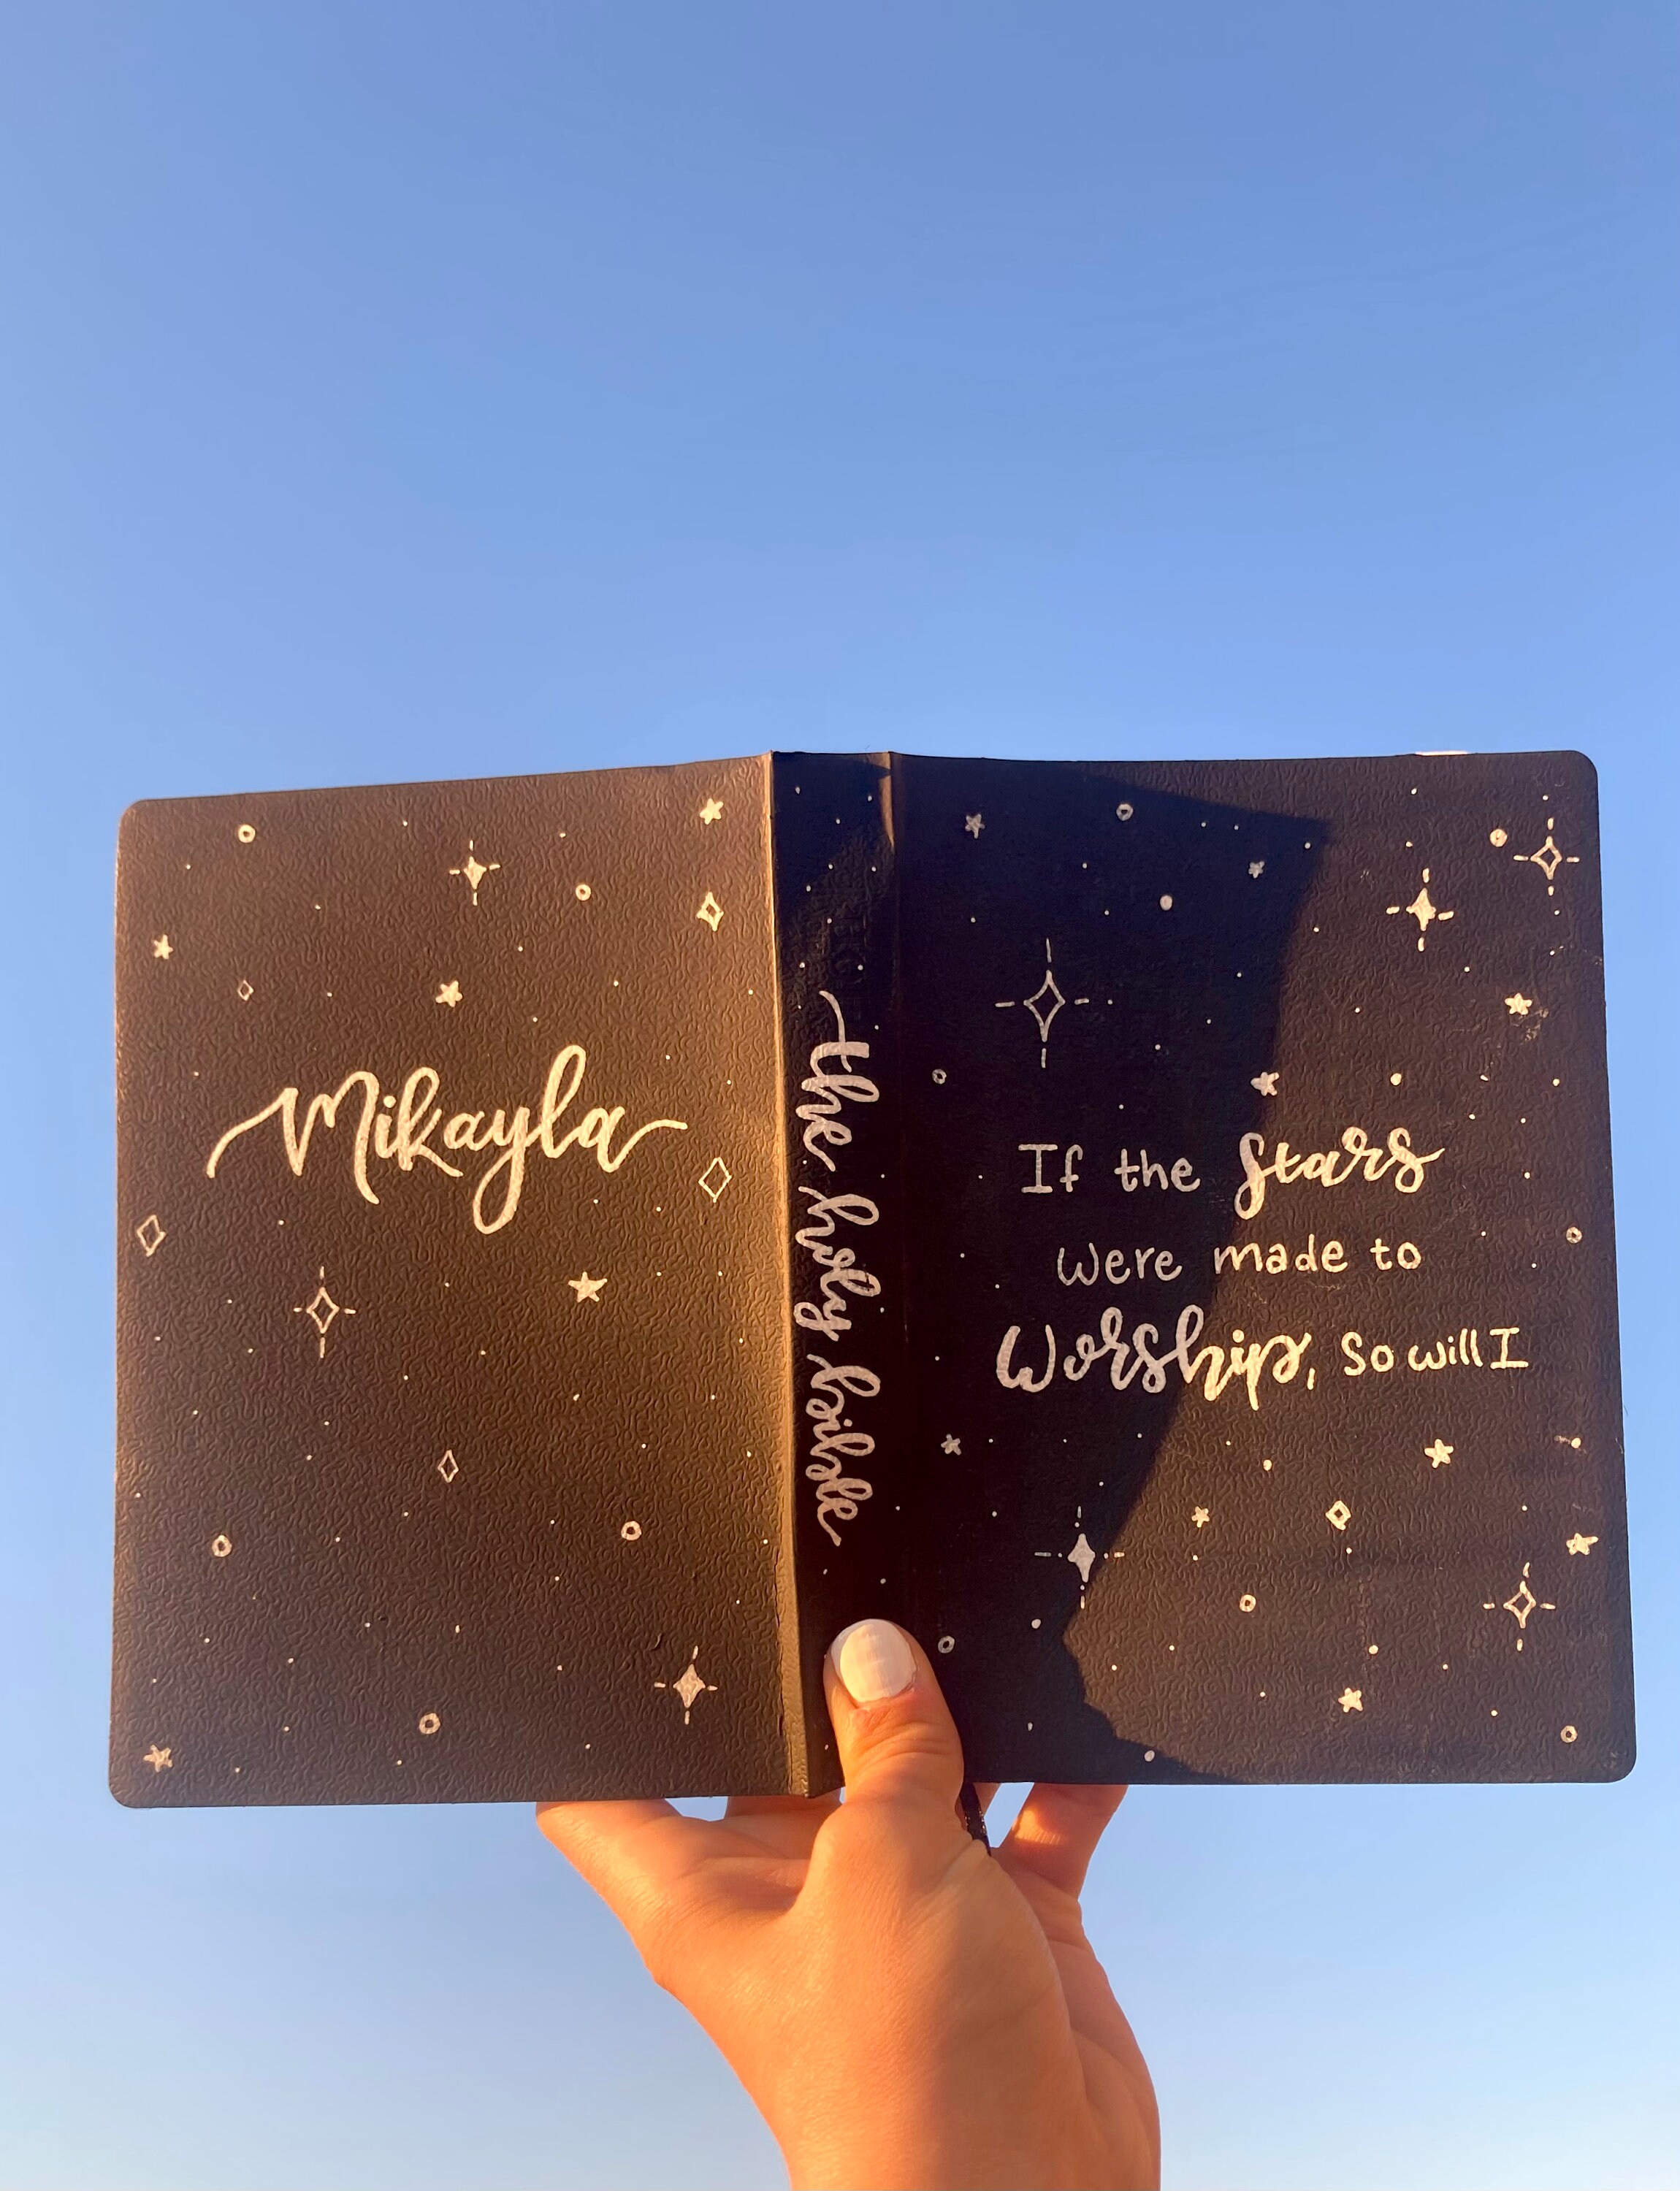 Mikayla
the holy bible
If the stars
were made to
Worship, So will I